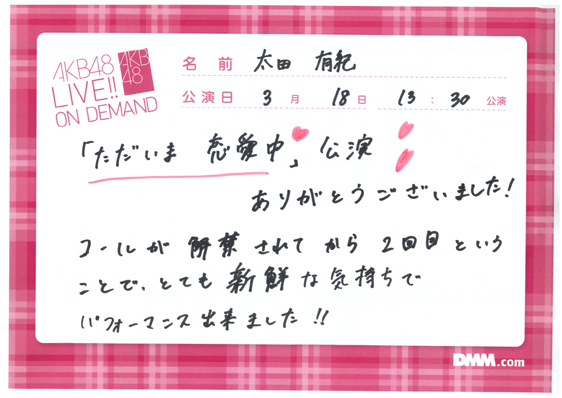 AKB48
LIVE!!
ON DEMAND
AKB
48
名前 太田 有紀
公演日 3月 18日 13:30 公演
「ただいま 恋愛中」公演
ありがとうございました!
コールが 解禁 されて から 2回目 という
ことで、とても 新鮮 な 気持ちで
パフォーマンス 出来ました!!
DMM.com